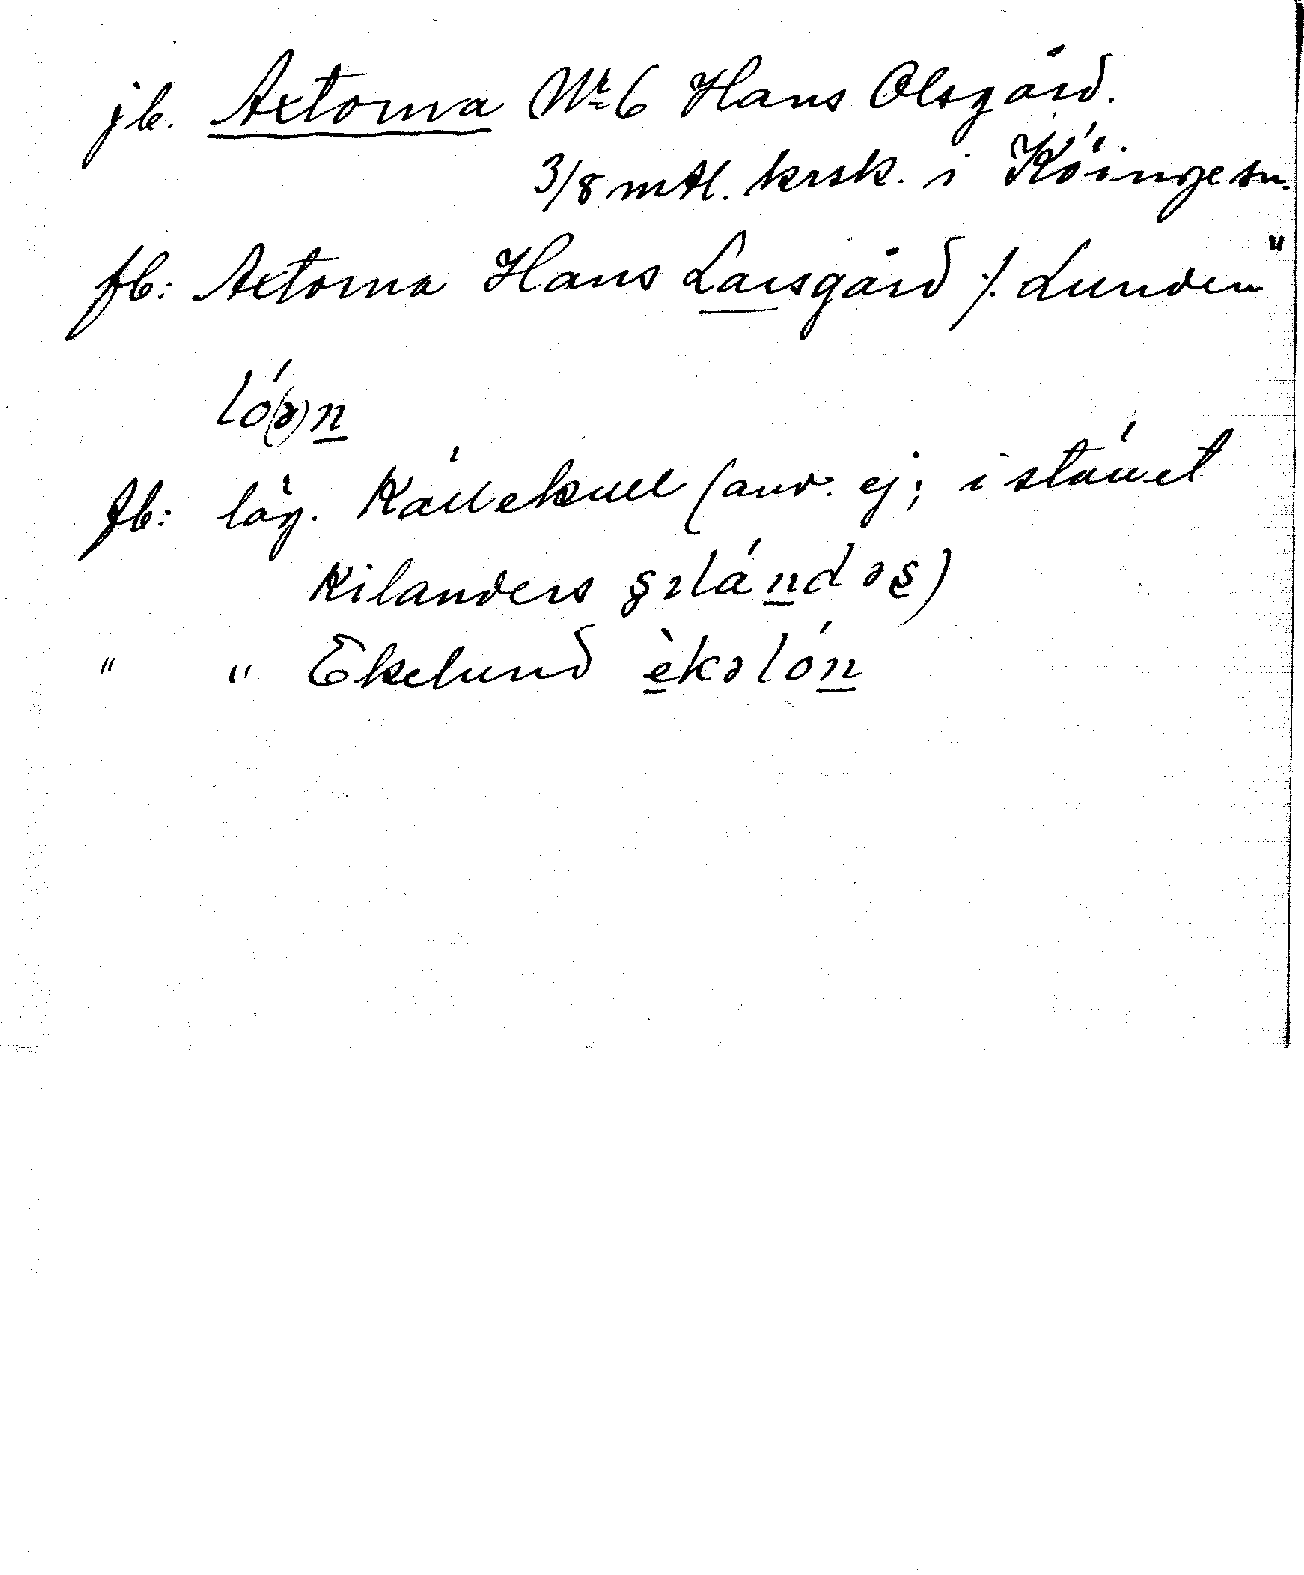 jb. Axtorna Nr 6 Hans Olsgård.
3/8 mtl. krsk. i Köinge sn.
fb: Axtorna Hans Larsgård /. Lunden"
ló(ə)n
fb: läg. Källekull (anv. ej; i stället
Kilanders şılándəş)
" " Ekelund èkəlón